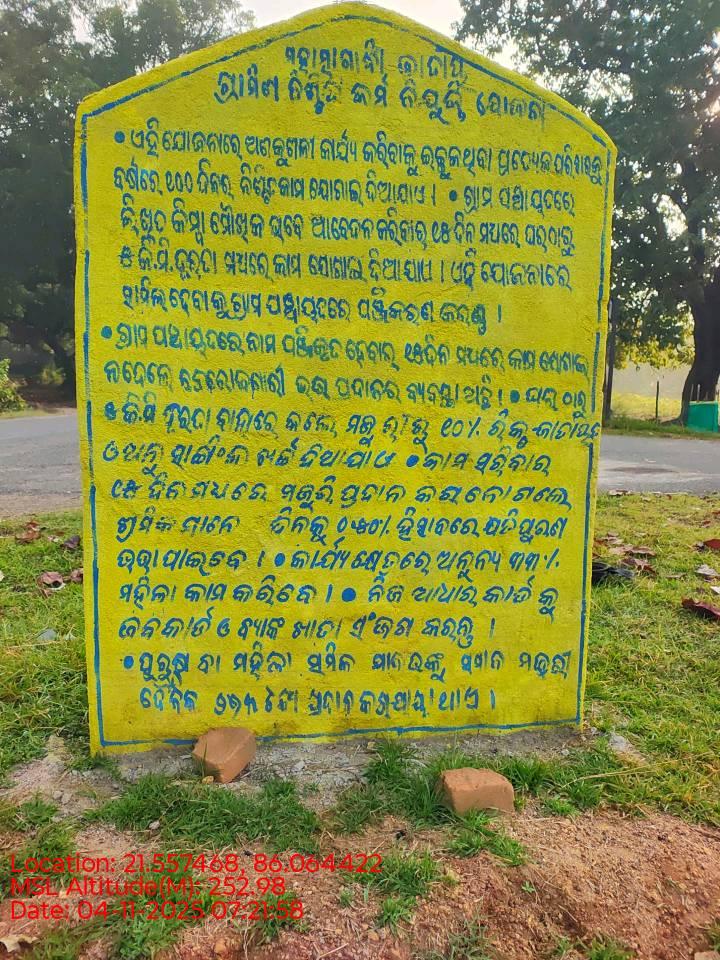 ମହାତ୍ମାଗାନ୍ଧୀ ଜାତୀୟ
ଗ୍ରାମୀଣ ନିଶ୍ଚିତ କର୍ମ ନିଯୁକ୍ତି ଯୋଜନା
• ଏହି ଯୋଜନାରେ ଅଣକୁଶଳୀ କାର୍ଯ୍ୟ କରିବାକୁ ଇଚ୍ଛୁକ ଥିବା ପ୍ରତ୍ୟେକ ପରିବାରକୁ
ବର୍ଷରେ ୧୦୦ ଦିନର ନିଶ୍ଚିତ କାମ ଯୋଗାଇ ଦିଆଯାଏ । • ଗ୍ରାମ ପଞ୍ଚାୟତରେ
ଲିଖିତ କିମ୍ବା ମୌଖିକ ଭାବେ ଆବେଦନ କରିବାର ୧୫ ଦିନ ମଧ୍ୟରେ ଘରଠାରୁ
୫ କି.ମି. ଦୂରତା ମଧ୍ୟରେ କାମ ଯୋଗାଇ ଦିଆଯାଏ । ଏହି ଯୋଜନାରେ
ସାମିଲ ହେବାକୁ ଗ୍ରାମ ପଞ୍ଚାୟତରେ ପଞ୍ଜିକରଣ କରନ୍ତୁ ।
• ଗ୍ରାମ ପଞ୍ଚାୟତରେ ନାମ ପଞ୍ଜିକୃତ ହେବାର ୧୫ ଦିନ ମଧ୍ୟରେ କାମ ଯୋଗାଇ
ନଦେଲେ ବେରୋଜଗାରୀ ଭତ୍ତା ପ୍ରଦାନର ବ୍ୟବସ୍ଥା ଅଛି । • ଘର ଠାରୁ
୫ କି.ମି ଦୂରତା ବାହାରେ କଲେ ମଜୁରୀ ରୁ ୧୦%
ଓ ଅନ୍ୟ ଖର୍ଚ୍ଚ ଦିଆଯାଏ • କାମ ସରିବାର
୧୫ ଦିନ ମଧ୍ୟରେ ମଜୁରି ପ୍ରଦାନ କରା ନୋଗଲେ
ଶ୍ରମିକ ମାନେ ଦିନକୁ ୦.୫୦% ହିସାବରେ କ୍ଷତିପୁରଣ
ଭତ୍ତା ପାଇବେ । • କାର୍ଯ୍ୟକ୍ଷେତ୍ରରେ ଅନୁନ୍ୟ ୩୩%
ମହିଳା କାମ କରିବେ । • ନିଜ ଆଧାର କାର୍ଡ କୁ
ଜବକାର୍ଡ ଓ ବ୍ୟାଙ୍କ ଖାତା ସଂଜଗ କରନ୍ତୁ ।
• ପୁରୁଷ ବା ମହିଳା ସମାନ ମଜୁରୀ
ଦୈନିକ ୨୭୩ ଟଙ୍କା ପ୍ରଦାନ କରାଯାୟାଥାଏ ।
Location: 21.557468, 86.064422
MSL Altitude(M): 252.98
Date: 04-11-2025 07:21:58